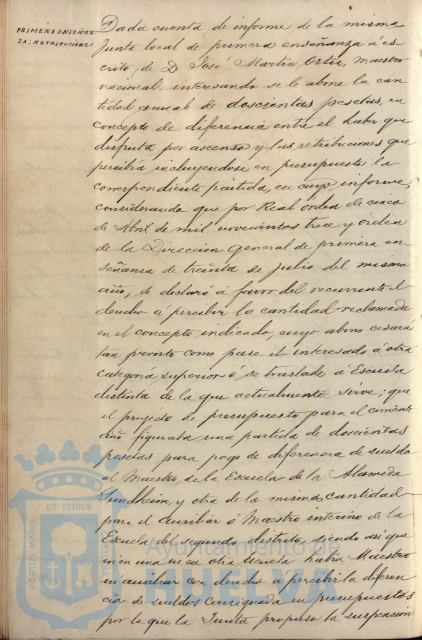 PRIMERA ENSEÑAN
ZA; RETRIBUCIONES
Dada cuenta de informe de la misma
Junta local de primera enseñanza á es
crito, de D. José Martin Ortiz, maestro
nacional, interesando se le abone la can
tidad anual de doscientas pesetas, en
concepto de diferencia entre el haber que
disfruta por ascenso y las retribuciones que
percibía incluyendose en presupuesto la
correspondiente partida, en cuyo informe,
considerando que por Real orden de cinco
de Abril de mil novecientos trece y orden
de la Direccion General de primera en
señanza de treinta de julio del mismo
año, se declaró á favor del recurrente el
derecho a percibir la cantidad reclamada
en el concepto indicado, cuyo abono cesará
tan pronto como pase el interesado á otra
categoria superior ó se traslade á Escuela
distinta de la que actualmente sirve; que
el proyecto de presupuesto para el corriente
año figuraba una partida de doscientas
pesetas para pago de diferencia de sueldo
al Maestro de la Escuela de la Alameda
Sundheim, y otra de la misma cantidad
para el auxiliar ó Maestro interino de la
Escuela del segundo distrito, siendo así que
ni en una ni en otra Escuela habia Maestro
ni auxiliar con derecho a percibir la diferen
cia de sueldos consignada en presupuestos
por lo que la Junta propuso la supresión
PORTUS MARIS
ET TERRAE
Ayuntamiento de
HUELVA